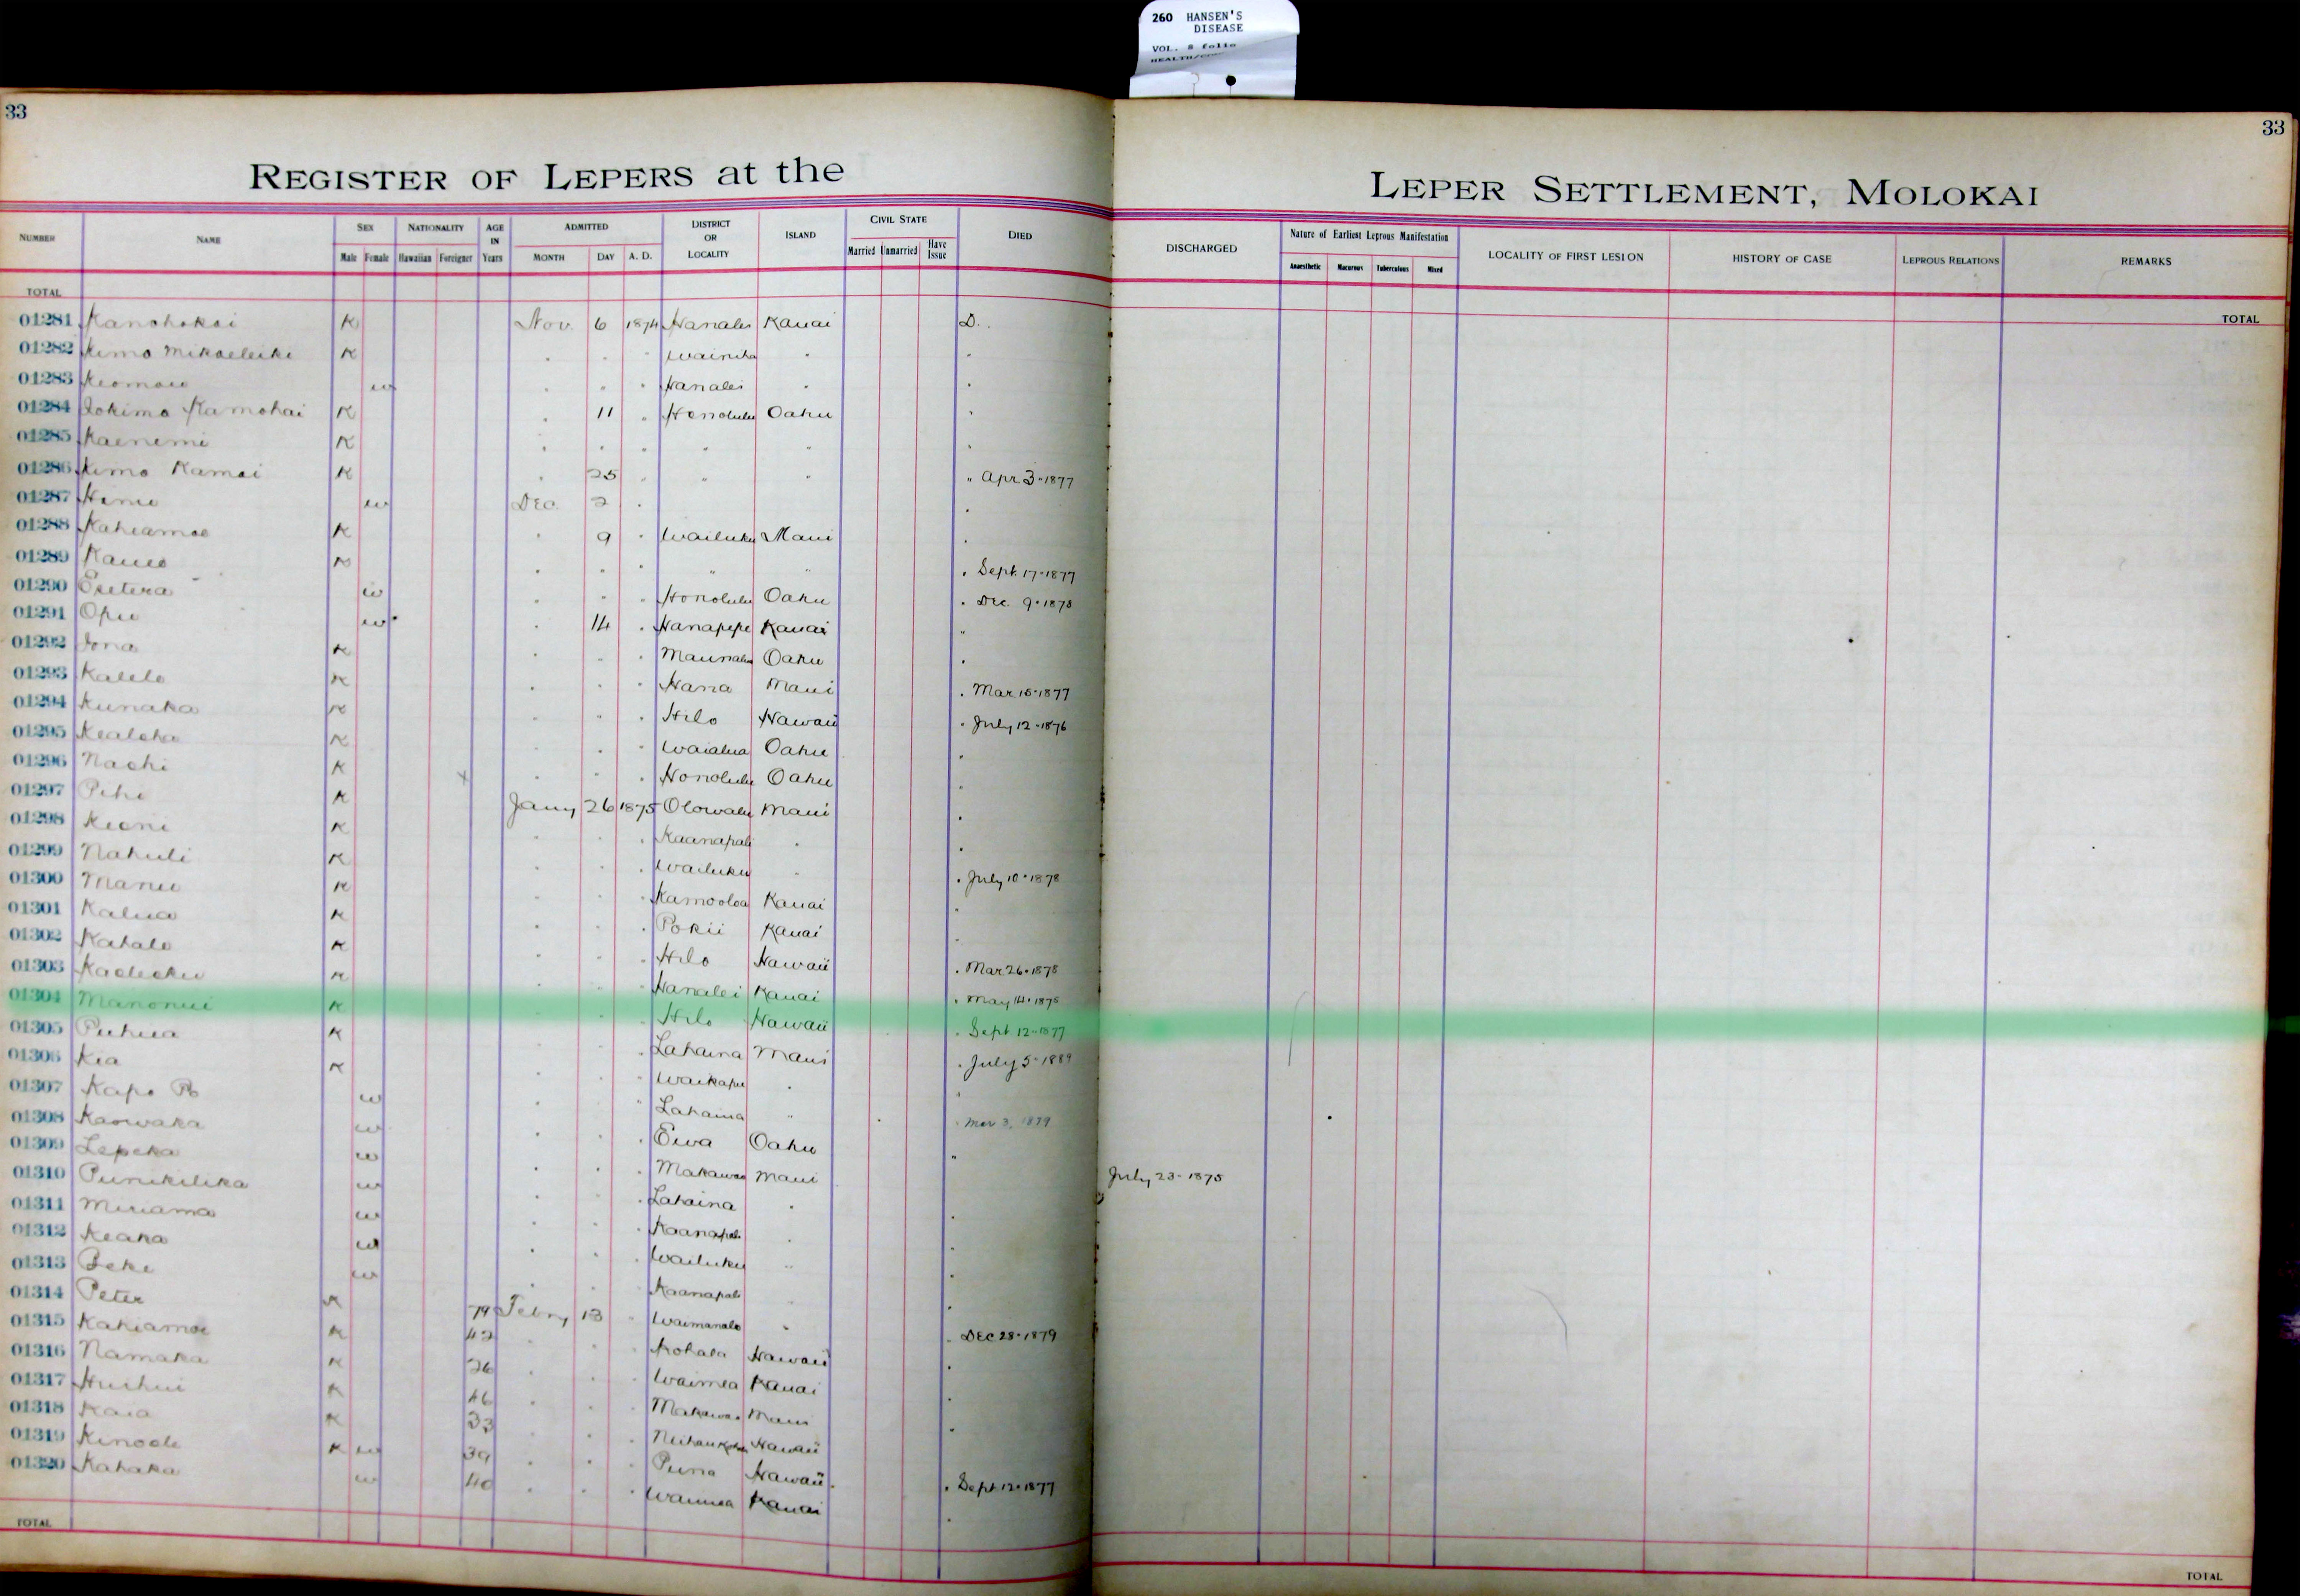 260 HANSEN'S
DISEASE
VOL. 8 folio
33
33
REGISTER OF LEPERS at the LEPER SETTLEMENT, MOLOKAI
NUMBER NAME SEX NATIONALITY AGE IN Years ADMITTED DISTRICT OR LOCALITY ISLAND CIVIL STATE DIED DISCHARGED Nature of Earliest Leprous Manifestation LOCALITY OF FIRST LESION HISTORY OF CASE LEPROUS RELATIONS REMARKS
Male Female Hawaiian Foreigner MONTH DAY A. D. Married Unmarried Have Issue Anaesthetic Macurous Tuberculous Mixed
TOTAL TOTAL
01281 Kanohokai K Nov. 6 1874 Hanalei Kauai D.
01282 Kimo Mikaeleiki K " " " Wainiha " "
01283 Keomau w " " " Hanalei " "
01284 Iokimo Kamohai K " 11 " Honolulu Oahu "
01285 Kaenemi K " " " " " "
01286 Kimo Kamai K " 25 " " " " Apr 3-1877
01287 w Dec. 2 " "
01288 Kahiamoe K " 9 " Wailuku Maui "
01289 Kaueo K " " " " " " Sept. 17-1877
01290 w " " " Honolulu Oahu " Dec. 9-1878
01291 Opu w " 14 " Hanapepe Kauai "
01292 Iona K " " " Maunalua Oahu "
01293 Kalelo K " " " Hana Maui " Mar 15-1877
01294 Kunaka K " " " Hilo Hawaii " July 12-1876
01295 Kealoha K " " " Waialua Oahu "
01296 Naohi K x " " " Honolulu Oahu "
01297 Pihi K Jany 26 1875 Olowalu Maui "
01298 Keoni K " " " Kaanapali " "
01299 Nahuli K " " " Wailuku " " July 10-1878
01300 Manu K " " " Kamooloa Kauai "
01301 Kalua K " " " Pokii Kauai "
01302 Kahalo K " " " Hilo Hawaii " Mar 26-1878
01303 K " " " Hanalei Kauai " May 14-1875
01304 Manonui K " " " Hilo Hawaii " Sept 12-1877
01305 Puhua K " " " Lahaina Maui " July 5-1889
01306 Kia K " " " Waikapu " "
01307 Kapo Po w " " " Lahaina " " Mar 3, 1879
01308 Kaowaka w " " " Ewa Oahu "
01309 Lepeka w " " " Makawao Maui July 23-1875
01310 Punikilika w " " " Lahaina " "
01311 Miriama w " " " Kaanapali " "
01312 Keaka w " " " Wailuku " "
01313 Beke w " " " Kaanapali " "
01314 Peter K 79 Febry 13 " Waimanalo " " Dec 28-1879
01315 Kahiamoe K 42 " " " Kohala Hawaii "
01316 Namaka K 26 " " " Waimea Kauai "
01317 Huihui K 46 " " " Makawao Maui "
01318 Kaia K 33 " " " Hawaii
01319 Kinoole K w 39 " " " Puna Hawaii " Sept 12-1877
01320 Kahaka w 40 " " " Waimea Kauai "
TOTAL TOTAL